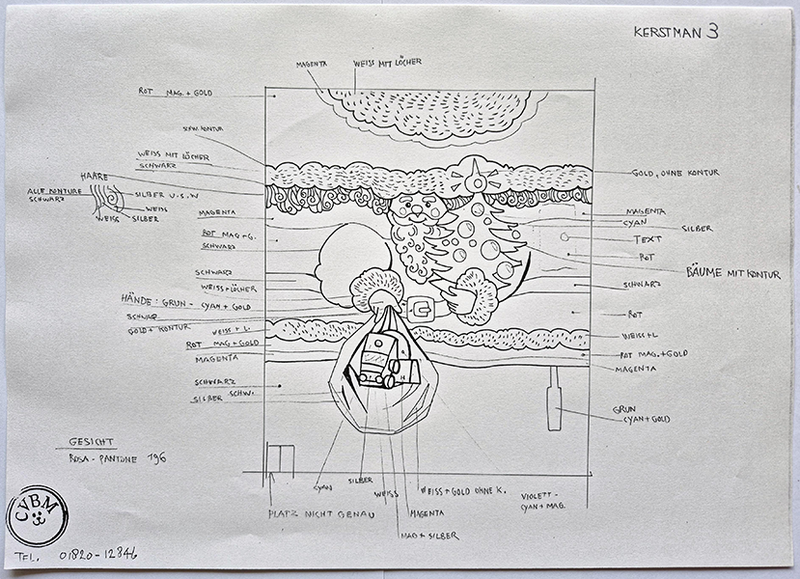 KERSTMAN 3
MAGENTA
WEISS MIT LÖCHER
ROT MAG. + GOLD
SCHW. KONTUR
WEISS MIT LÖCHER
SCHWARZ
HAARE
ALLE KONTURE
SCHWARZ
SILBER U.S.W
WEISS
WEISS
SILBER
MAGENTA
ROT MAG+G.
SCHWARZ
SCHWARZ
WEISS+LÖCHER
HÄNDE: GRUN - CYAN + GOLD
SCHWARZ
GOLD + KONTUR
WEISS + L.
ROT MAG + GOLD
MAGENTA
SCHWARZ
SILBER SCHW.
GESICHT
ROSA - PANTONE 196
GOLD, OHNE KONTUR
MAGENTA
CYAN
SILBER
TEXT
ROT
BÄUME MIT KONTUR
SCHWARZ
ROT
WEISS+L
ROT MAG.+GOLD
MAGENTA
GRUN
CYAN+GOLD
CYAN
SILBER
WEISS
WEISS+GOLD OHNE K.
VIOLETT -
CYAN + MAG.
PLATZ NICHT GENAU
MAGENTA
MAG + SILBER
CVBM
TEL. 01820-12846